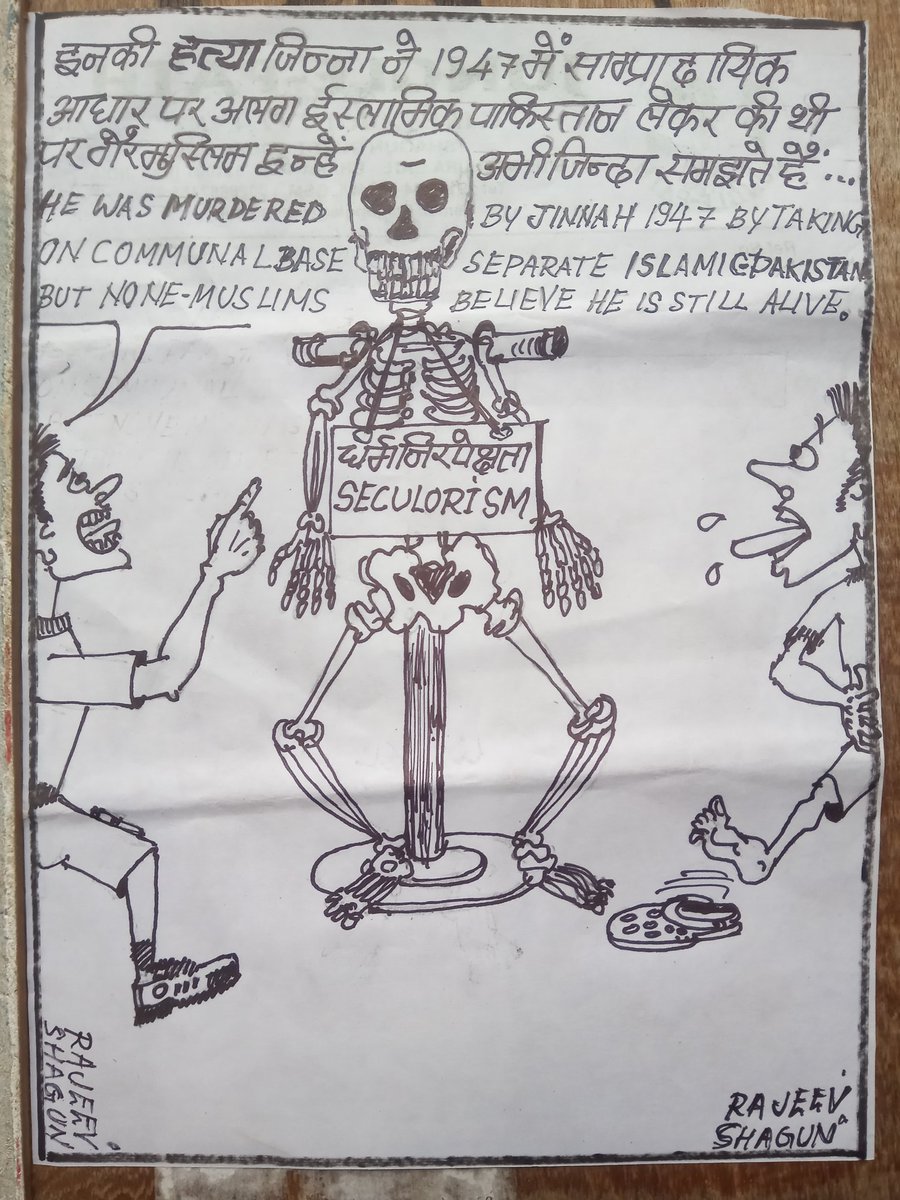 इनकी हत्या जिन्ना ने 1947 में साम्प्रादायिक
आधार पर अलग ईस्लामिक पाकिस्तान लेकर की थी
पर गैरमुस्लिम इन्हें अभी जिन्दा समझते हैं...
HE WAS MURDERED BY JINNAH 1947 BY TAKING
ON COMMUNAL BASE SEPARATE ISLAMIC PAKISTAN
BUT NONE-MUSLIMS BELIEVE HE IS STILL ALIVE.
धर्मनिरपेक्षता
SECULORISM
RAJEEV
SHAGUN
RAJEEV
SHAGUN